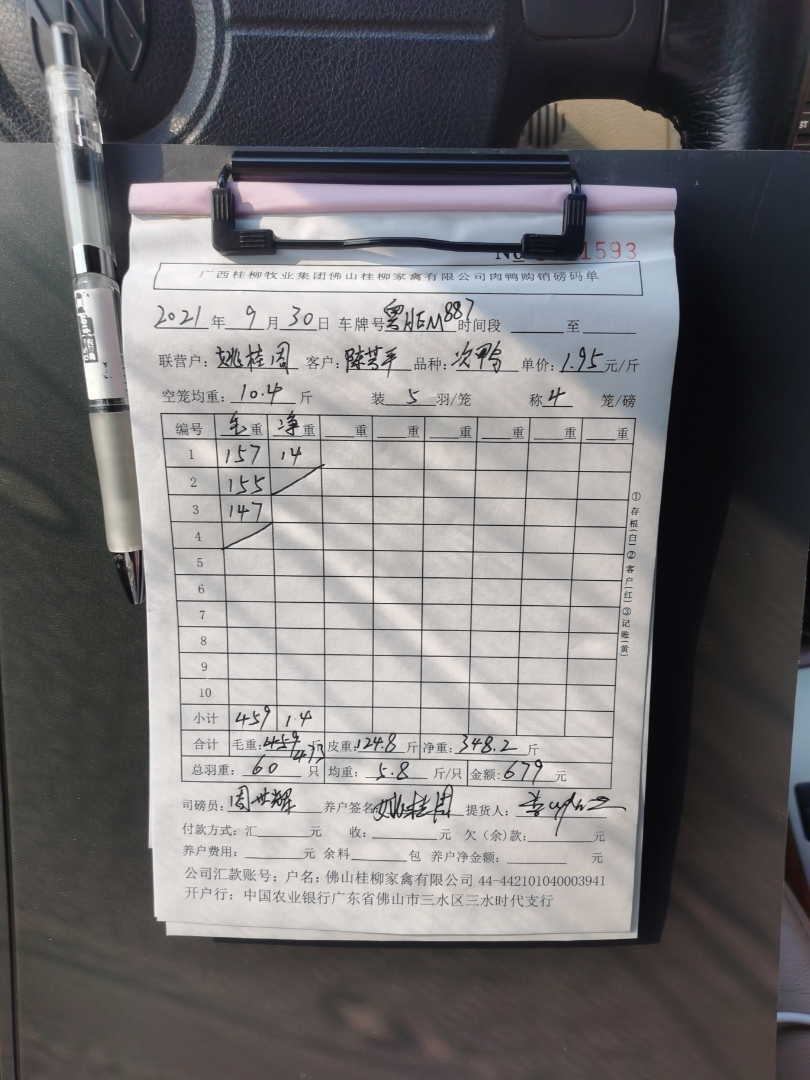 No 1593
广西桂柳牧业集团佛山桂柳家禽有限公司肉鸭购销磅码单
2021年 9月 30日 车牌号粤HEM887时间段 至
联营户：姚桂周 客户：陈芳平 品种：次鸭 单价：1.95元/斤
空笼均重：10.4斤 装 5 羽/笼 称 4 笼/磅
编号 毛重 净重 重 重 重 重 重 重
1 157 14
2 155
3 147
4
5
6
7
8
9
10
小计 459 14
合计 毛重：459 473斤 皮重：124.8斤 净重：348.2斤
总羽重：60只 均重：5.8斤/只 金额：679元
司磅员：周世辉 养户签名：姚桂周 提货人：
付款方式：汇 元 收： 元 欠（余）款： 元
养户费用： 元 余料 包 养户净金额： 元
公司汇款账号：户名：佛山桂柳家禽有限公司 44-442101040003941
开户行：中国农业银行广东省佛山市三水区三水时代支行
①存根（白）②客户（红）③记账（黄）